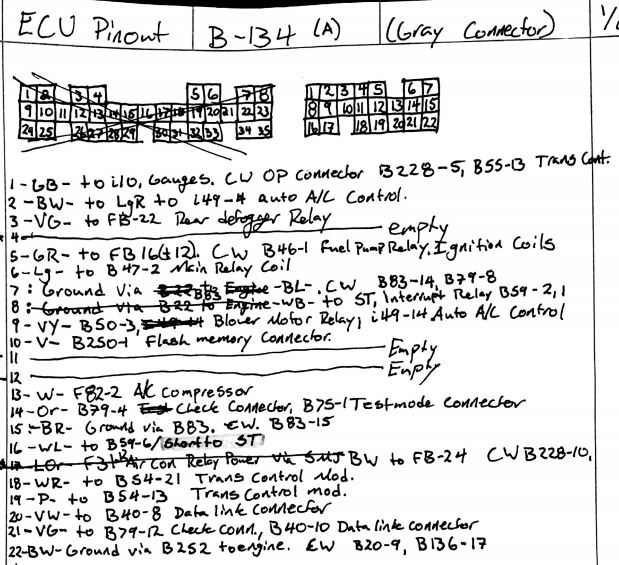 ECU Pinout B-134 (A) (Gray Connector) 1/
1 2 3 4 5 6 7 8
9 10 11 12 13 14 15 16 17 18 19 20 21 22 23
24 25 26 27 28 29 30 31 32 33 34 35
1 2 3 4 5 6 7
8 9 10 11 12 13 14 15
16 17 18 19 20 21 22
1-GB- to i10, Gauges. CW OP connector B228-5, B55-13 Trans Cont.
2-BW- to LgR to i49-4 auto A/C Control.
3-VG- to FB-22 Rear defogger Relay
4 empty
5-GR- to FB16(±12). CW B46-1 Fuel Pump Relay. Ignition Coils
6-Lg- to B47-2 Main Relay Coil
7: Ground Via B22 to Engine B83 -BL-. CW B83-14, B79-8
8: Ground Via B22 to Engine -WB- to ST, Interrupt Relay B59-2,1
9-VY- B50-3, Blower Motor Relay, i49-14 Auto A/C Control
10-V- B250-1 Flash memory Connector.
11 Empty
12 Empty
13-W- F82-2 A/C compressor
14-Or- B79-4 Test Check Connector, B75-1 Testmode Connector
15:-BR- Ground via B83. CW. B83-15
16-WL- to B59-6/Short to ST
17-LOr- F31 Air Con Relay Power Via BW to FB-24 CW B228-10,
18-WR- to B54-21 Trans Control Mod.
19-P- to B54-13 Trans Control mod.
20-VW- to B40-8 Data link Connector
21-VG- to B79-12 Check Conn., B40-10 Data link connector
22-BW-Ground via B252 to engine. CW B20-9, B136-17